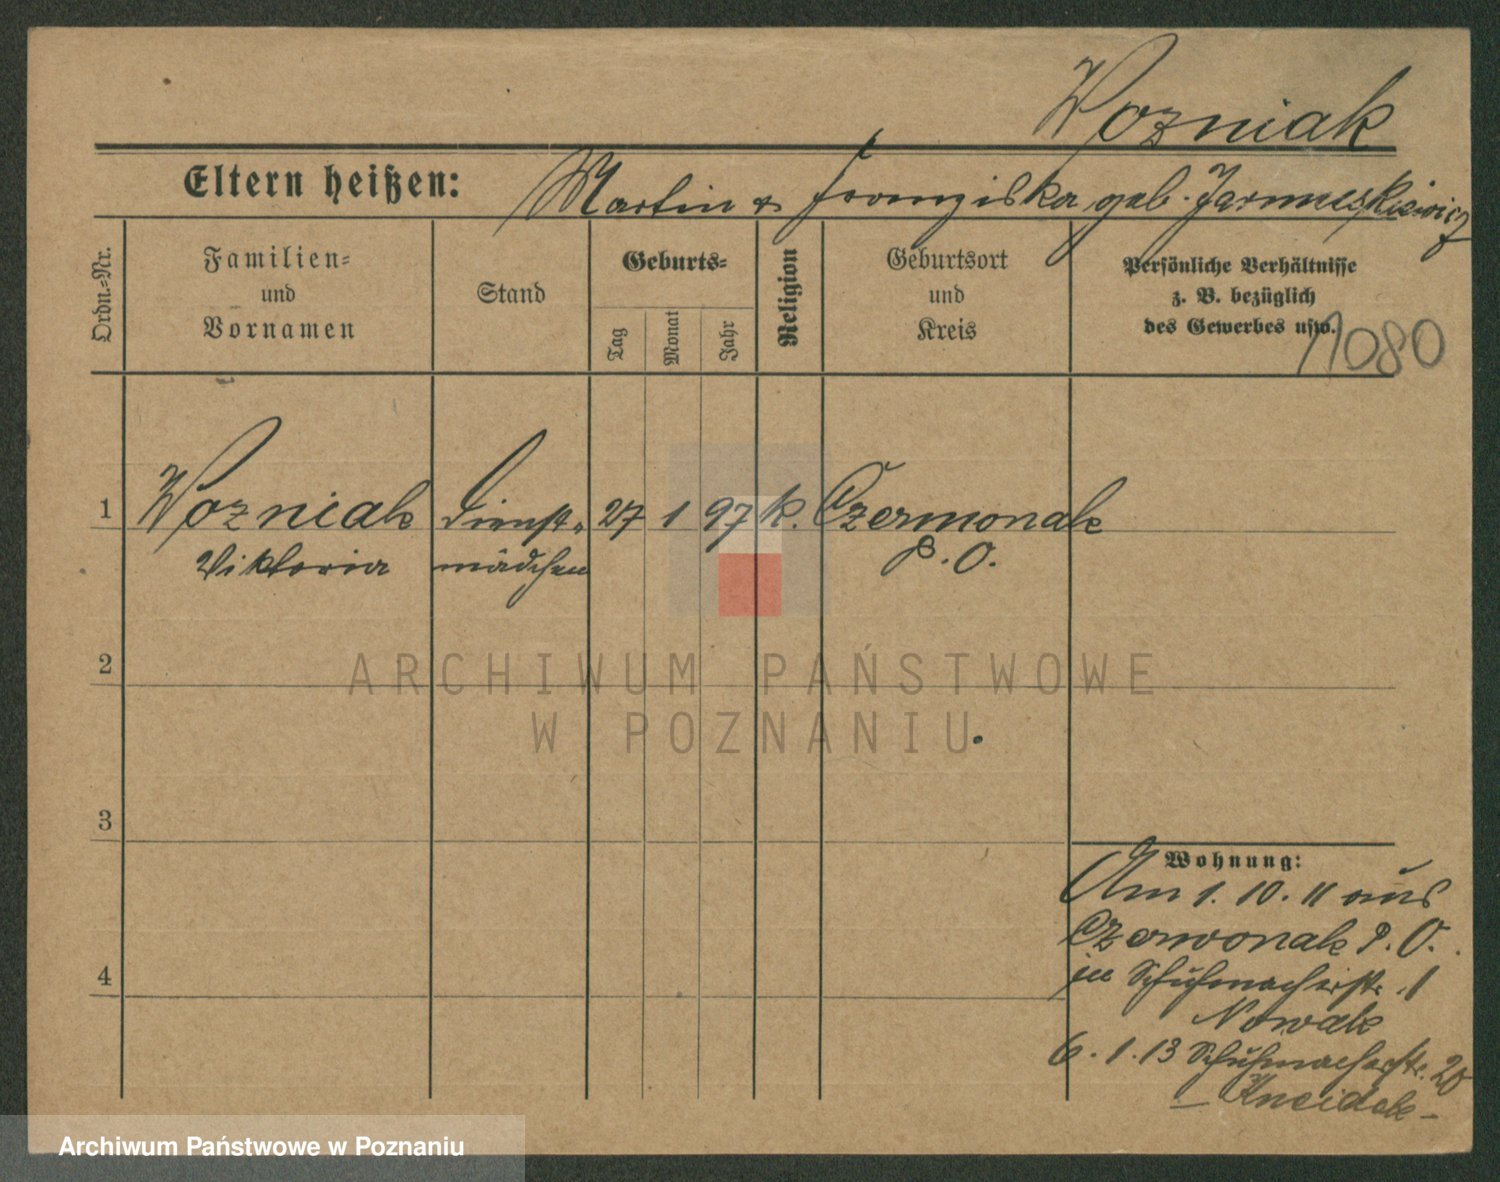 Wozniak
Eltern heißen: Martin & Franziska geb. Jarmuszkiewicz
Ordn.-Nr.
Familien-
und
Vornamen
Stand
Geburts-
Tag
Monat
Jahr
Religion
Geburtsort
und
Kreis
Persönliche Verhältnisse
z. B. bezüglich
des Gewerbes usw.
1080
1 Wozniak Dienst- 27 1 97 k. Czerwonak
Viktoria mädchen P. O.
2
ARCHIWUM PAŃSTWOWE
W POZNANIU
3
Wohnung:
Am 1. 10. 11 aus
Czerwonak P. O.
in Schuhmacherstr. 1
4
Nowak
6. 1. 13 Schuhmacherstr. 20
– Kneidek –
Archiwum Państwowe w Poznaniu